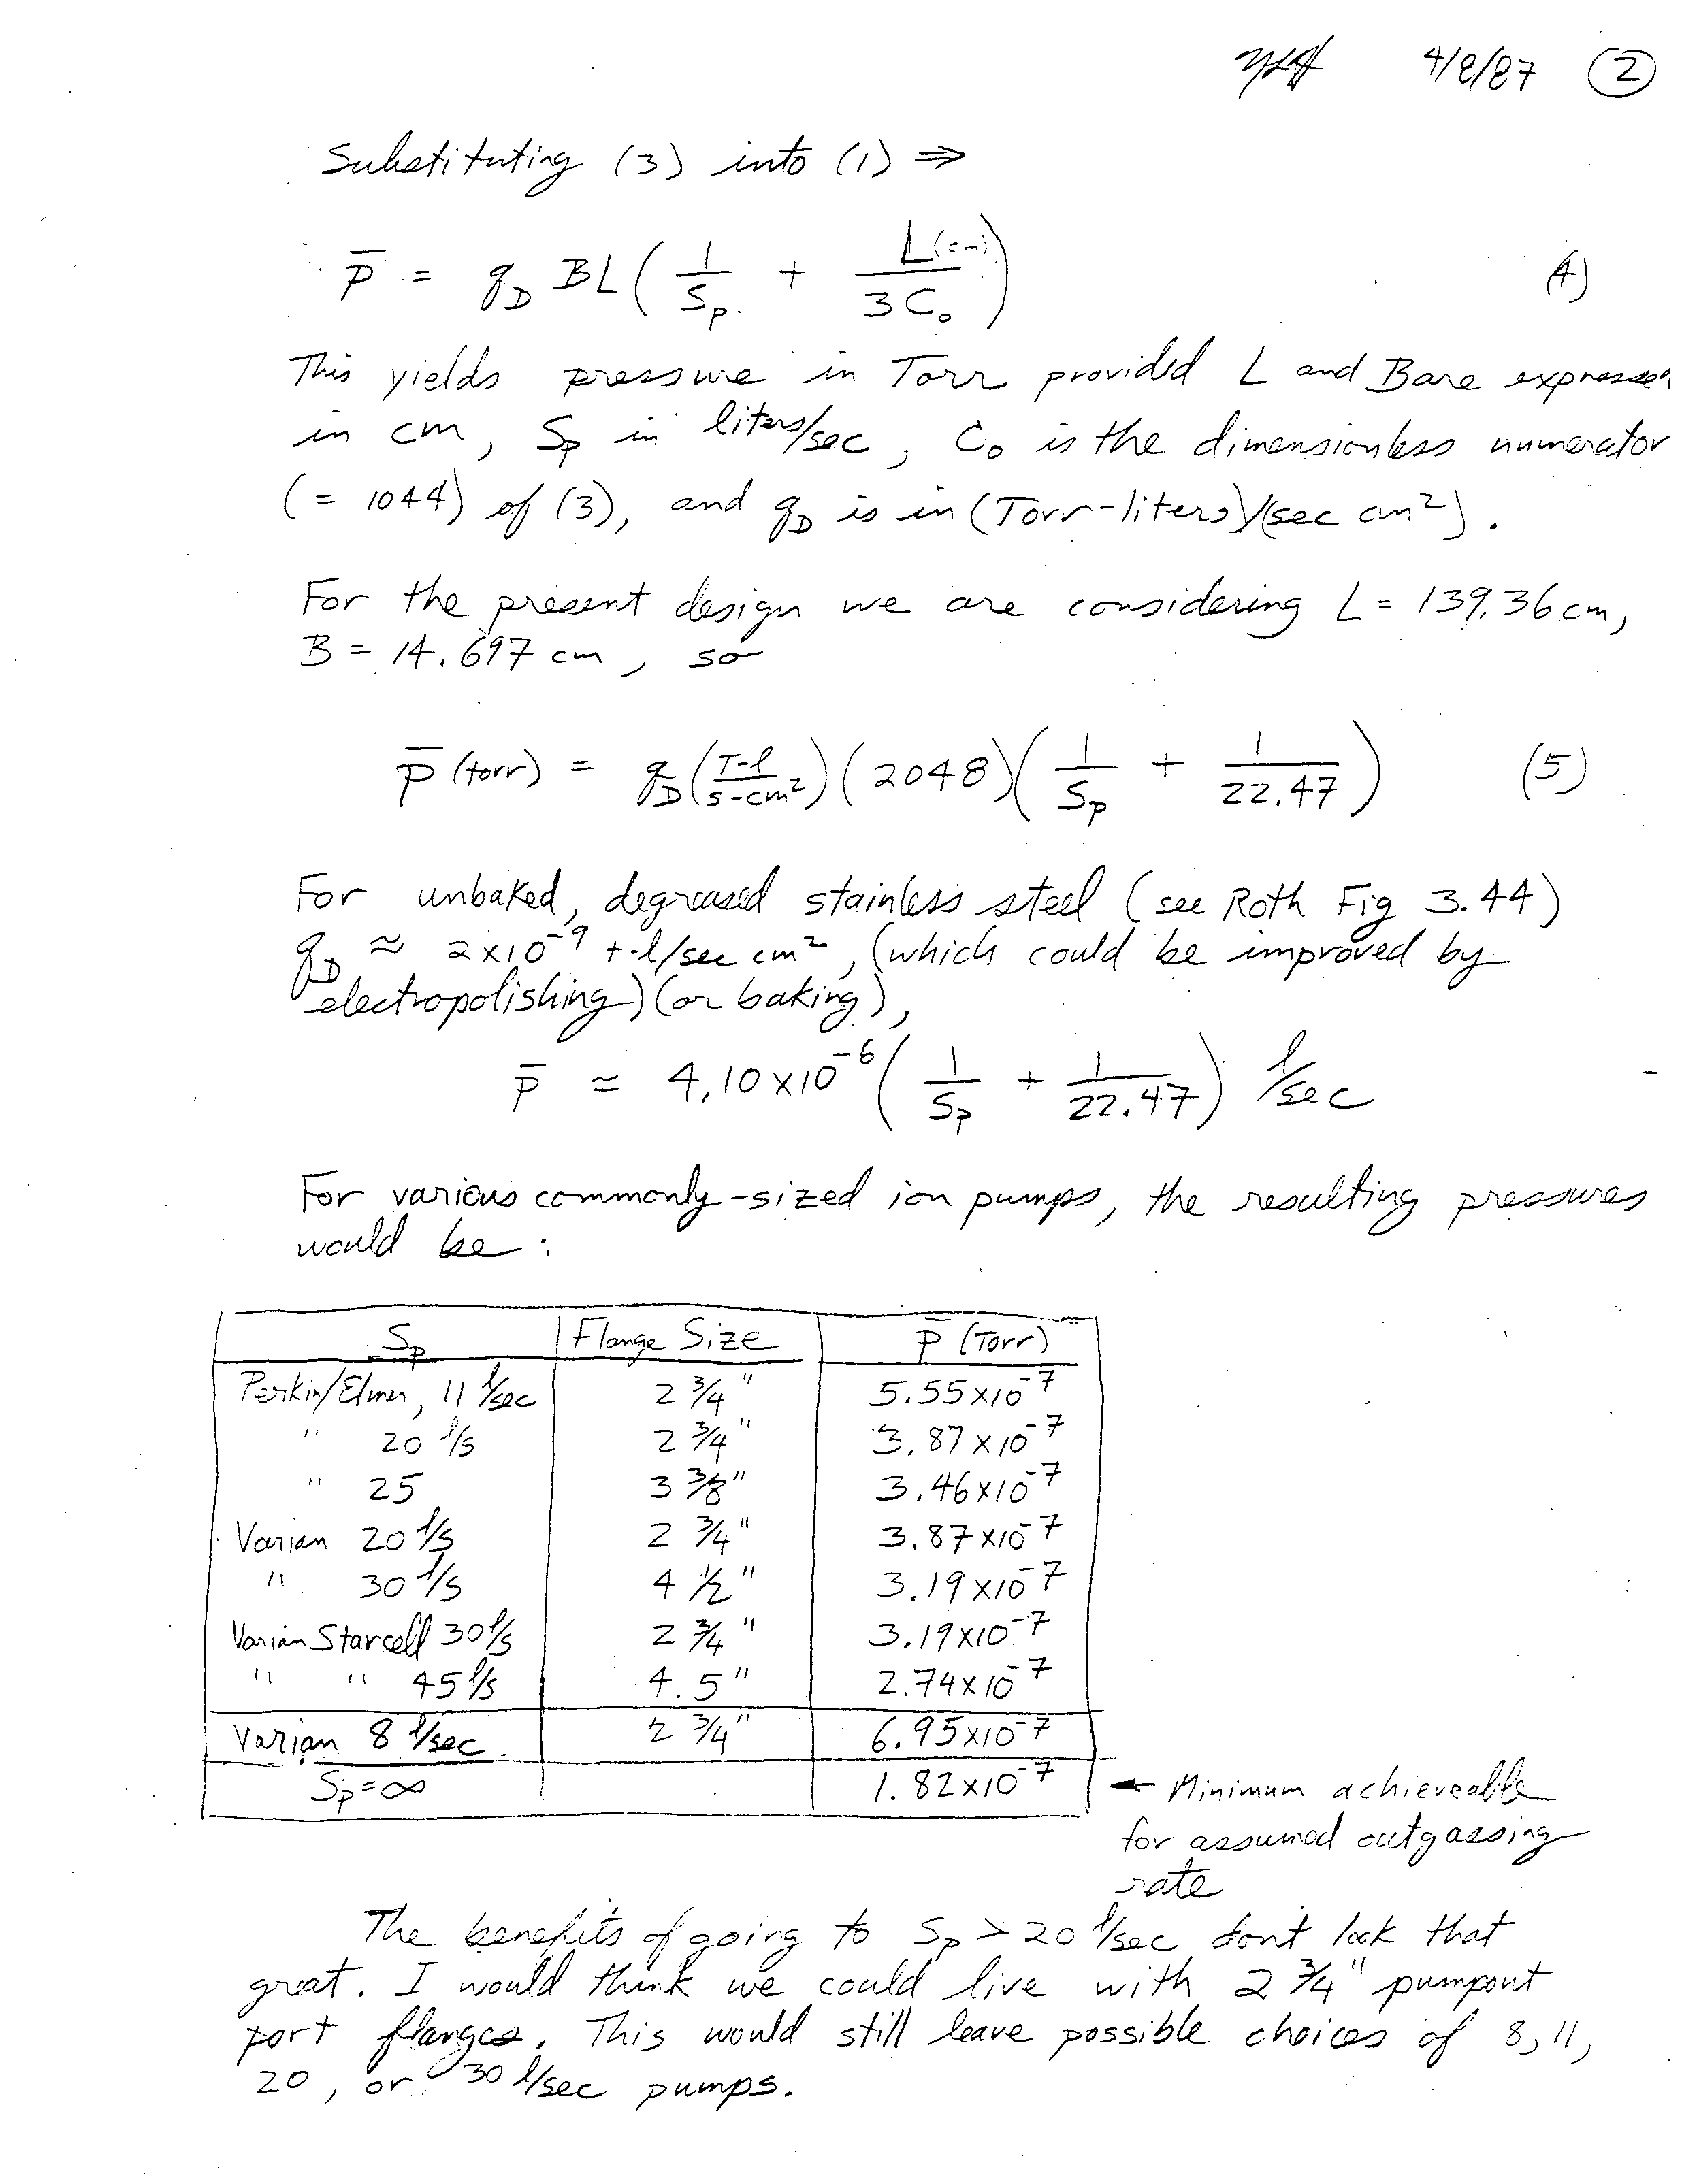 4/8/87 ②
Substituting (3) into (1) ⇒
p̄ = q_D BL ( 1/S_p + L(cm)/3C₀ ) (4)
This yields pressure in Torr provided L and B are expressed
in cm, S_p in liters/sec, C₀ is the dimensionless numerator
(= 1044) of (3), and q_D is in (Torr-liters)/(sec cm²).
For the present design we are considering L = 139.36 cm,
B = 14.697 cm, so
p̄ (torr) = q_D (T-l/s-cm²) (2048) ( 1/S_p + 1/22.47 ) (5)
For unbaked, degreased stainless steel (see Roth Fig 3.44)
q_D ≈ 2x10⁻⁹ t-l/sec cm², (which could be improved by
electropolishing) (or baking),
p̄ ≃ 4.10x10⁻⁶ ( 1/S_p + 1/22.47 ) l/sec
For various commonly-sized ion pumps, the resulting pressures
would be:
S_p Flange Size p̄ (Torr)
Perkin/Elmer, 11 l/sec 2 3/4" 5.55x10⁻⁷
" 20 l/s 2 3/4" 3.87x10⁻⁷
" 25 3 3/8" 3.46x10⁻⁷
Varian 20 l/s 2 3/4" 3.87x10⁻⁷
" 30 l/s 4 1/2" 3.19x10⁻⁷
Varian Starcell 30 l/s 2 3/4" 3.19x10⁻⁷
" " 45 l/s 4.5" 2.74x10⁻⁷
Varian 8 l/sec. 2 3/4" 6.95x10⁻⁷
S_p = ∞ 1.82x10⁻⁷ ← Minimum achieveable
for assumed outgassing
rate
The benefits of going to S_p > 20 l/sec don't look that
great. I would think we could live with 2 3/4" pumpout
port flanges. This would still leave possible choices of 8, 11,
20, or 30 l/sec pumps.